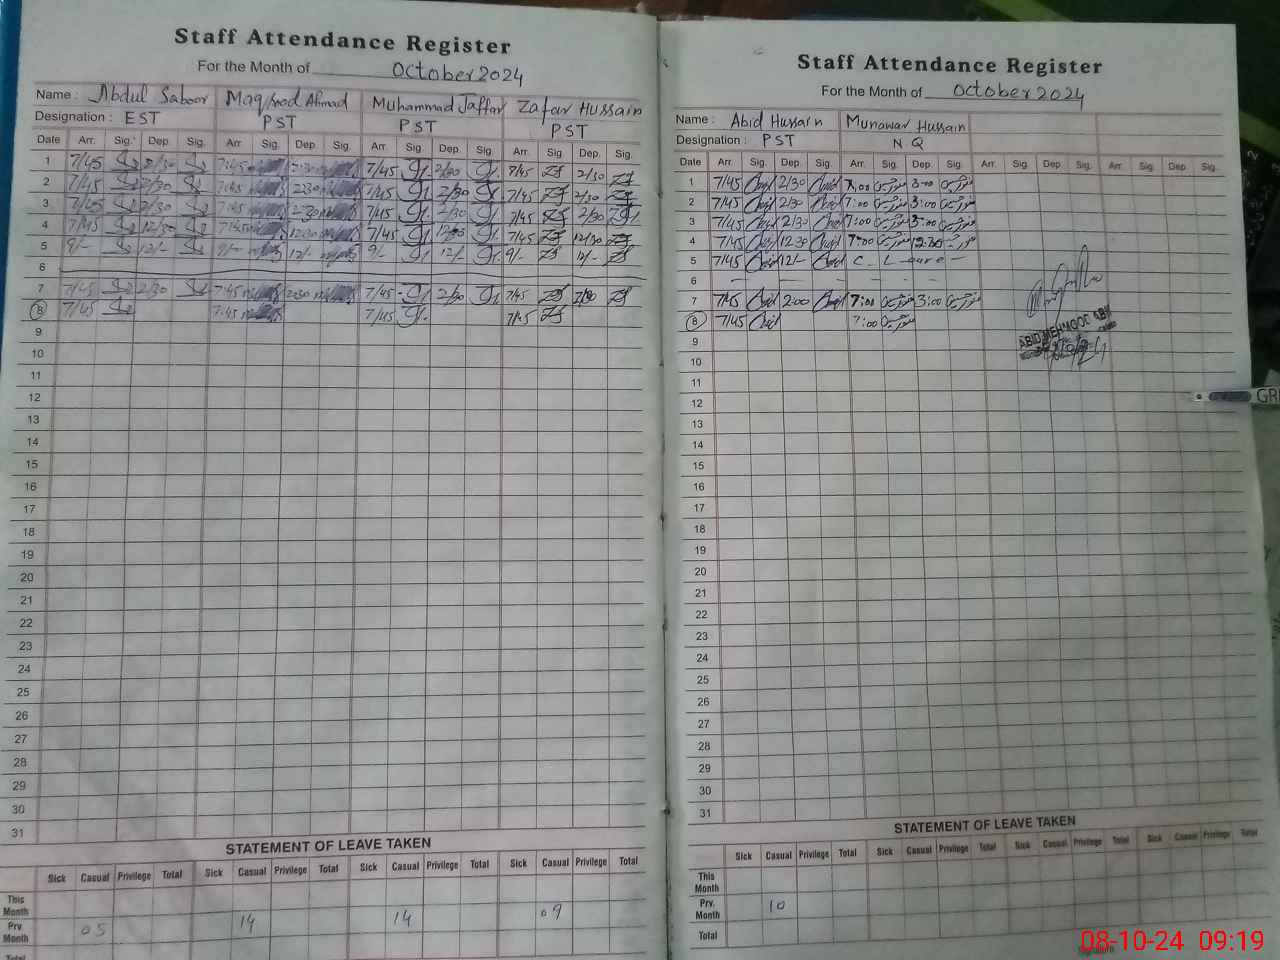 Staff Attendance Register
For the Month of October 2024
Name : Abdul Saboor Maqsood Ahmad Muhammad Jaffar Zafar Hussain
Designation : EST PST PST PST
Date Arr. Sig. Dep. Sig. Arr. Sig. Dep. Sig. Arr. Sig. Dep. Sig. Arr. Sig. Dep. Sig.
1 7/45 2/30 7:45 2:30 7/45 2/30 7/45 2/30
2 7/45 2/30 7:45 2:30 7/45 2/30 7/45 2/30
3 7/45 2/30 7:45 2:30 7/45 2/30 7/45 2/30
4 7/45 12/30 7:45 12:30 7/45 7/45 12/30
5 9/- 12/- 9/- 12/- 9/- 12/- 9/- 12/-
6
7 7/45 2/30 7:45 2:30 7/45 2/30 7/45 2/30
8 7/45 7:45 7/45 7/45
9
10
11
12
13
14
15
16
17
18
19
20
21
22
23
24
25
26
27
28
29
30
31
STATEMENT OF LEAVE TAKEN
Sick Casual Privilege Total Sick Casual Privilege Total Sick Casual Privilege Total Sick Casual Privilege Total
This Month
Prv. Month 05 14 14 09
Total
Staff Attendance Register
For the Month of October 2024
Name : Abid Hussain Munawar Hussain
Designation : PST N Q
Date Arr. Sig. Dep. Sig. Arr. Sig. Dep. Sig. Arr. Sig. Dep. Sig. Arr. Sig. Dep. Sig.
1 7/45 2/30 7:00 3:00
2 7/45 2/30 7:00 3:00
3 7/45 2/30 7:00 3:00
4 7/45 12 30 7:00 12:30
5 7/45 12/- C - Leave -
6 - - - -
7 7/45 2:00 7:00 3:00
8 7/45 7:00
9
10
11
12
13
14
15
16
17
18
19
20
21
22
23
24
25
26
27
28
29
30
31
ABID MEHMOOD
STATEMENT OF LEAVE TAKEN
Sick Casual Privilege Total Sick Casual Privilege Total Sick Casual Privilege Total Sick Casual Privilege Total
This Month
Prv. Month 10
Total
Signature
08-10-24 09:19